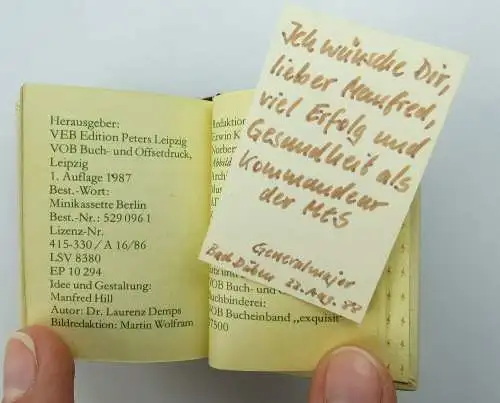 Herausgeber:
VEB Edition Peters Leipzig
VOB Buch- und Offsetdruck,
Leipzig
1. Auflage 1987
Best.-Wort:
Minikassette Berlin
Best.-Nr.: 529 096 1
Lizenz-Nr.
415-330/A 16/86
LSV 8380
EP 10 294
Idee und Gestaltung:
Manfred Hill
Autor: Dr. Laurenz Demps
Bildredaktion: Martin Wolfram
Redaktion
Erwin K
Norber
Abbild
Arch
VOB Buch- und
Buchbinderei:
VOB Bucheinband „exquisit"
7500
Ich wünsche Dir,
lieber Manfred,
viel Erfolg und
Gesundheit als
Kommandeur
der MHS
Generalmajor
Bad Düben 22. Aug. 88